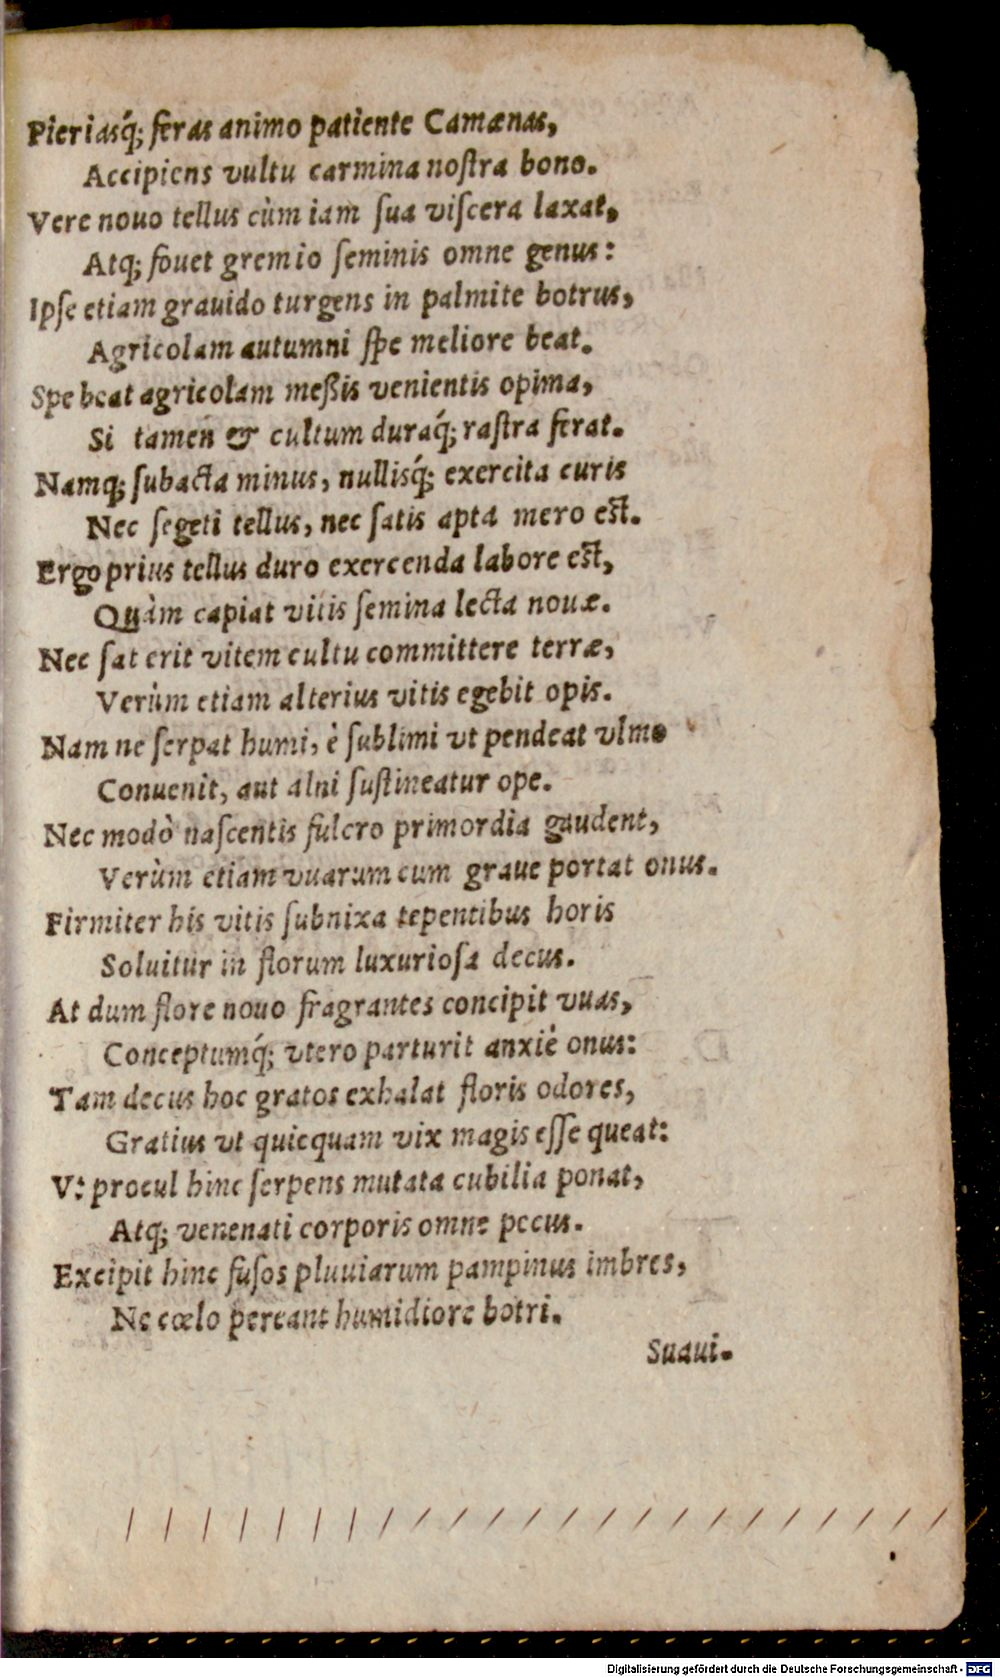 Pieriasq́; feras animo patiente Camænas,
Accipiens vultu carmina noſtra bono.
Vere nouo tellus cùm iam ſua viſcera laxat,
Atq; fouet gremio ſeminis omne genus:
Ipſe etiam grauido turgens in palmite botrus,
Agricolam autumni ſpe meliore beat.
Spe beat agricolam meßis venientis opima,
Si tamen & cultum duraq́; raſtra ferat.
Namq; ſubacta minus, nullisq́; exercita curis
Nec ſegeti tellus, nec ſatis apta mero eſt.
Ergo prius tellus duro exercenda labore eſt,
Quàm capiat vitis ſemina lecta nouæ.
Nec ſat erit vitem cultu committere terræ,
Verùm etiam alterius vitis egebit opis.
Nam ne ſerpat humi, è ſublimi vt pendeat vlmo
Conuenit, aut alni ſuſtineatur ope.
Nec modò naſcentis fulcro primordia gaudent,
Verùm etiam vuarum cum graue portat onus.
Firmiter his vitis ſubnixa tepentibus horis
Soluitur in florum luxurioſa decus.
At dum flore nouo fragrantes concipit vuas,
Conceptumq́; vtero parturit anxiè onus:
Tam decus hoc gratos exhalat floris odores,
Gratius vt quicquam vix magis eſſe queat:
Vt procul hinc ſerpens mutata cubilia ponat,
Atq; venenati corporis omne pecus.
Excipit hinc fuſos pluuiarum pampinus imbres,
Ne cœlo pereant humidiore botri.
Suaui.
Digitalisierung gefördert durch die Deutsche Forschungsgemeinschaft - DFG